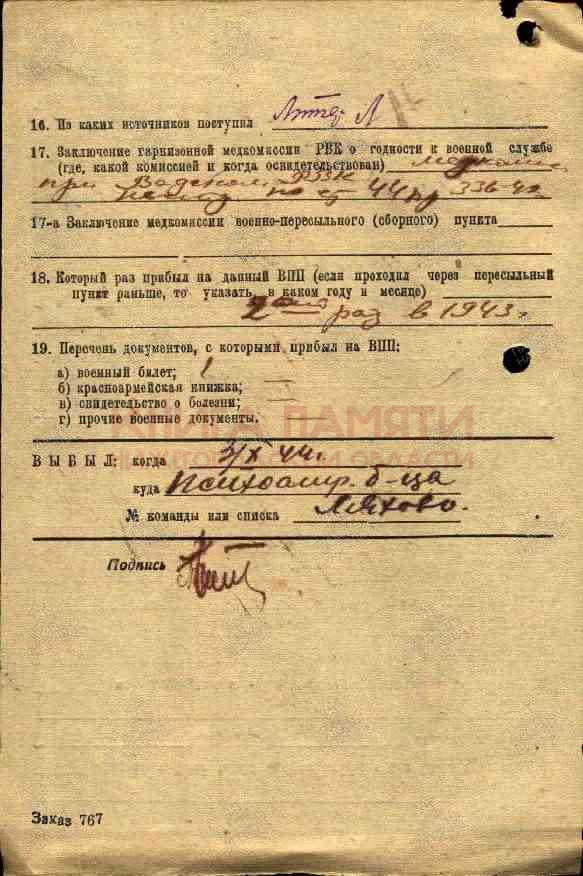 16. Из каких источников поступил
17. Заключение гарнизонной медкомиссии РВК о годности к военной службе
(где, какой комиссией и когда освидетельствован)
при
17-а Заключение медкомиссии военно-пересыльного (сборного) пункта
18. Который раз прибыл на данный ВПП (если проходил через пересыльный
пункт раньше, то указать, в каком году и месяце)
раз в 1943 г
19. Перечень документов, с которыми прибыл на ВПП:
а) военный билет;
б) красноармейская книжка;
в) свидетельство о болезни;
г) прочие военные документы.
КНИГА ПАМЯТИ
ОБЛАСТИ
ВЫБЫЛ: когда 3/X 44 г.
куда б-ца
№ команды или списка Ляхово.
Подпись
Заказ 767